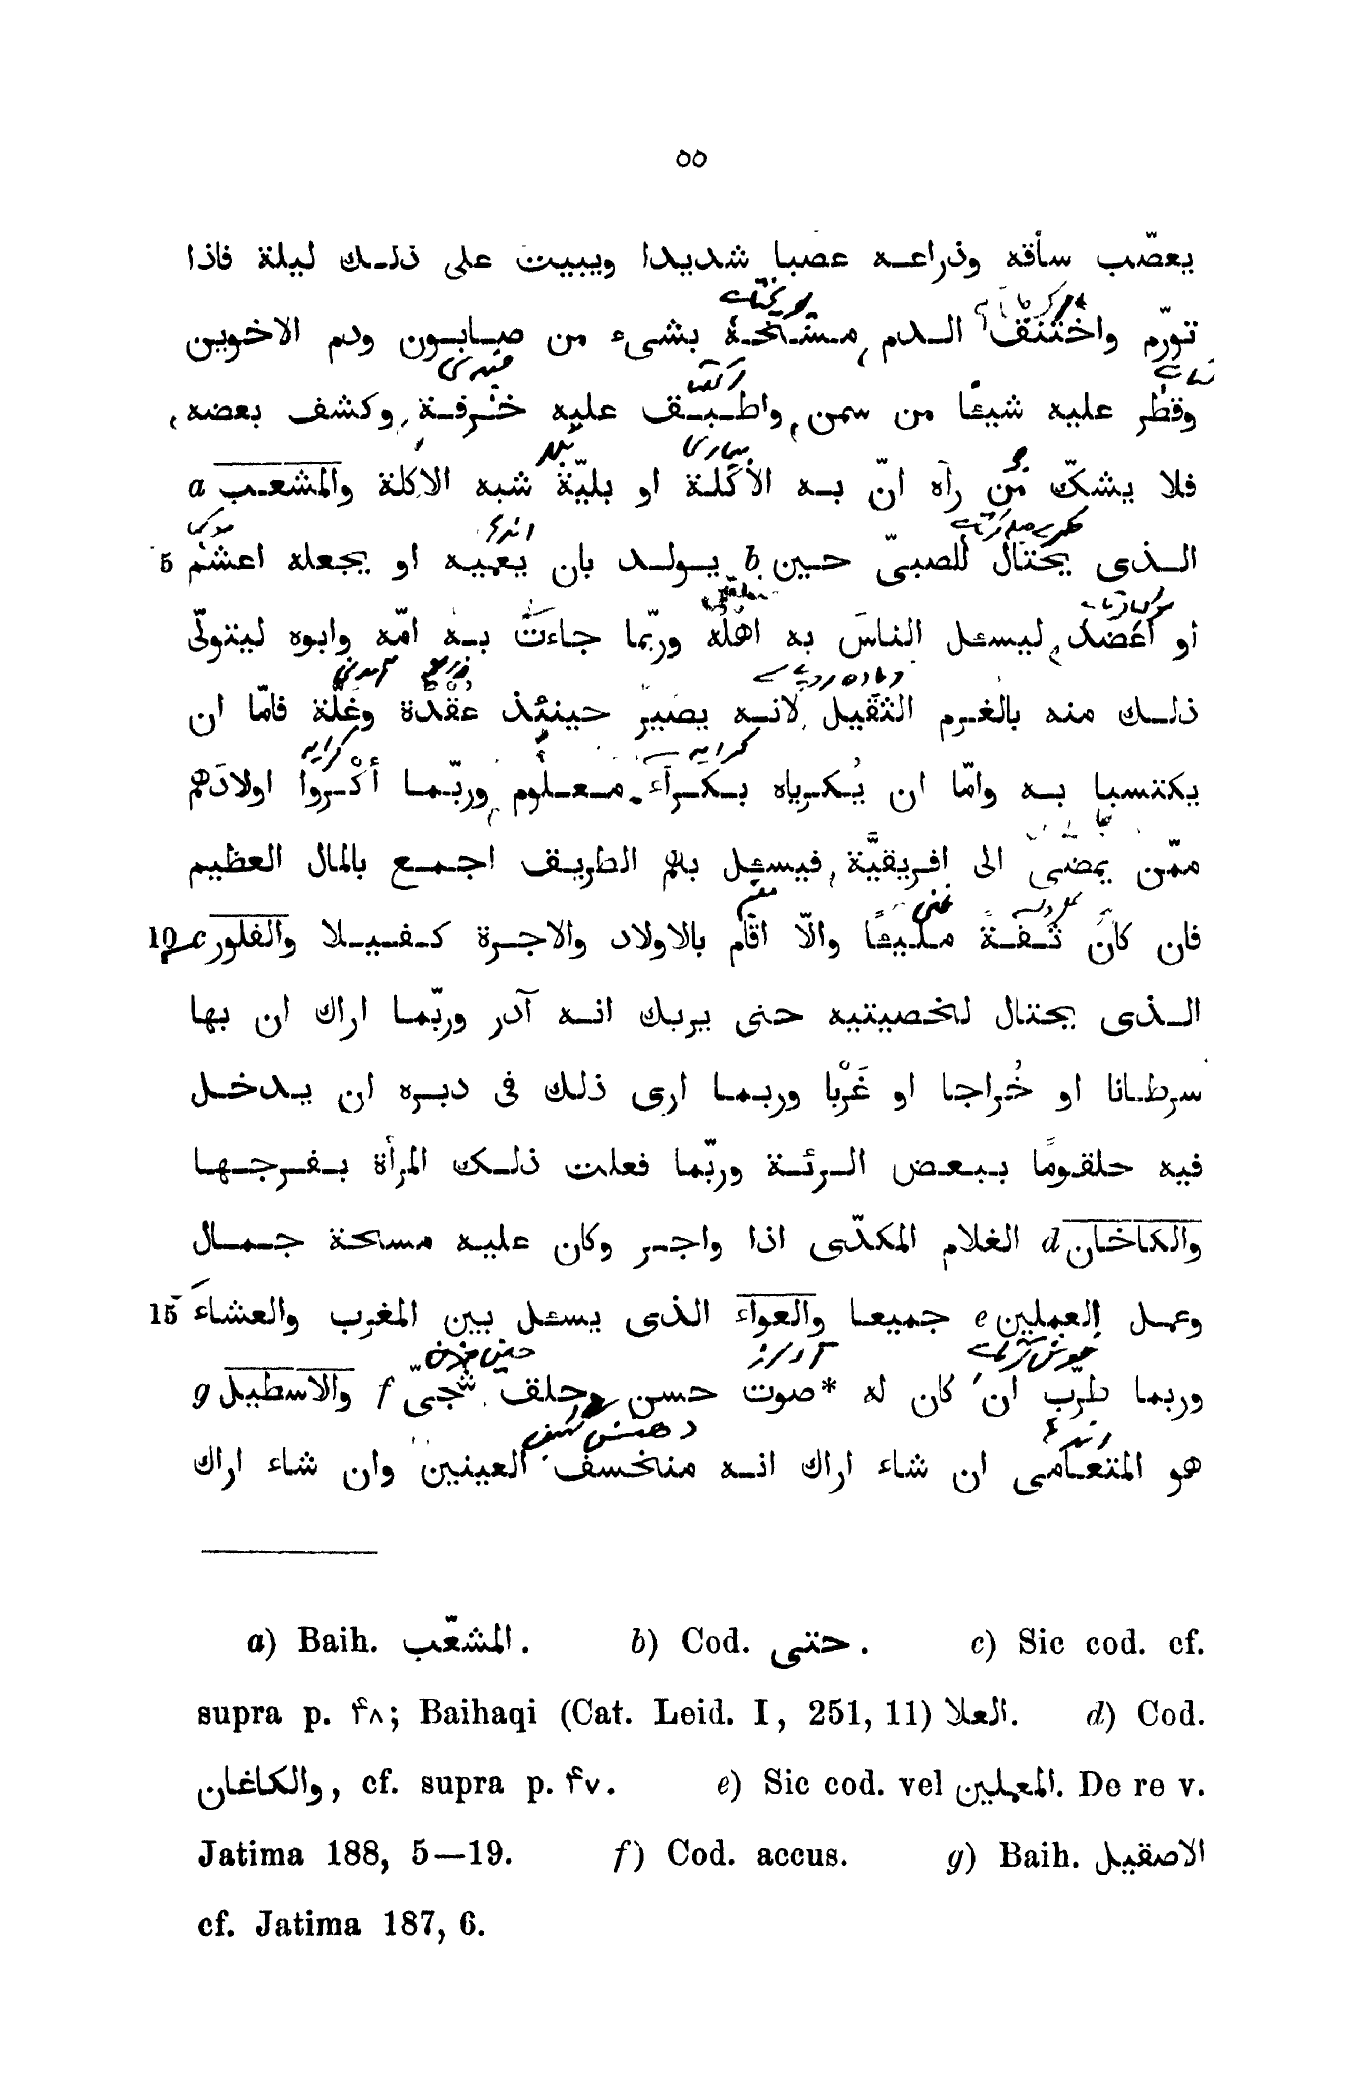 ٥٥
يعصّب سأقه وذراعه عصبا شديدا ويبيت على ذلك ليلة فاذا
تورّم واختنق الدم مسحه بشىء من صابون ودم الاخوين
وقطر عليه شيئا من سمن واطبق عليه خرفة وكشف بعضه
فلا يشكّ من رآه انّ به الأكلة او بليّة شبه الاكلة والمشعب a
5 الذى يحتال للصبىّ حين b يولد بان يعميه او يجعله اعشم
أو أعضد ليسئل الناس به اهله وربّما جاءت به امّه وابوه ليتولّى
ذلك منه بالغرم الثقيل لانه يصير حينئذ عقدة وغلّة فامّا ان
يكتسبا به وامّا ان يُكرياه بكرآء معلوم وربّما أكْروا اولادَهم
ممّن يمضى الى افريقيّة فيسئل بهم الطريق اجمع بالمال العظيم
10 فان كان ثقة مليئا والّا اقام بالاولاد والاجرة كفيلا والفلور c
الذى يحتال لخصيتيه حتى يريك انه آدر وربّما اراك ان بها
سرطانا او خُراجا او غَرْبا وربما ارى ذلك فى دبره ان يدخل
فيه حلقومًا ببعض الرئة وربّما فعلت ذلك المرأة بفرجها
والكاخان d الغلام المكدّى اذا واجر وكان عليه مسحة جمال
15 وعمل العملين e جميعا والعواء الذى يسئل بين المغرب والعشاء
وربما طرب ان كان له *صوت حسن وحلق شجىّ f والاسطيل g
هو المتعامى ان شاء اراك انه منخسف العينين وان شاء اراك
a) Baih. المشعّب. b) Cod. حتى. c) Sic cod. cf.
supra p. ۴٨; Baihaqi (Cat. Leid. I, 251, 11) العلا. d) Cod.
والكاغان, cf. supra p. ۴٧. e) Sic cod. vel المعملين. De re v.
Jatima 188, 5—19. f) Cod. accus. g) Baih. الاصقيل
cf. Jatima 187, 6.